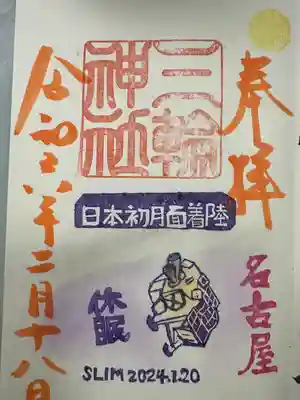 奉拝
三輪
神社
日本初月面着陸
名古屋
休眠
SLIM 2024.1.20
令和六年二月十八日